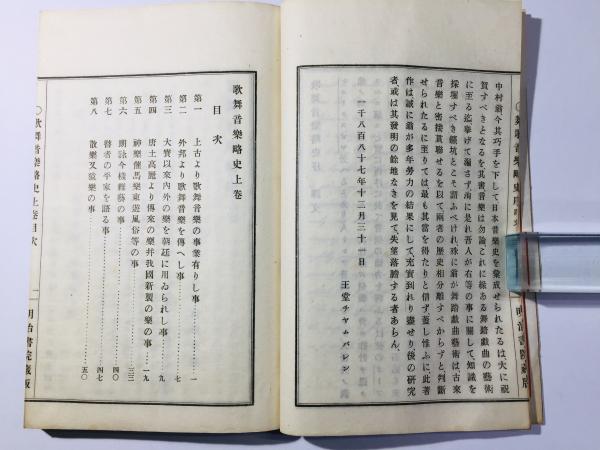 中村翁今其巧手を下して日本音樂史を彙成せられたるは、大に祝
賀すべきとなるを其書音樂は勿論これに縁ある舞踏戲曲の藝術
に至る迄擧げて漏さず、洵に是れ吾人が右等の事に關して知識を
採堀すべき鑛坑とこそ謂ふべけれ殊に翁が舞踏戲曲藝術は古來
音樂と密接貫聯せるを以て兩者の歴史相分離すべからずと判斷
せられたるに至りては最も其當を得たりと信ず蓋し惟ふに此著
作は誠に翁が多年勞力の結果にして充實到れり盡せり後の研究
者或は其發明の餘地なきを見て失望落膽する者あらん
一千八百八十七年十二月三十一日
王堂チヤムバレン
明治書院藏版
歌舞音樂略史上卷
目次
第一 上古より歌舞音樂の事業有りし事 一
第二 外邦より歌舞音樂を傳へし事 七
第三 大寶以來内外の樂を朝廷に用ゐられし事 九
第四 唐土高麗より傳來の樂并我國新製の樂の事 一九
第五 神樂催馬樂東遊風俗等の事 三三
第六 朗詠今様雜藝の事 四〇
第七 瞽者の平家を語る事 四七
第八 散樂又猿樂の事 五〇
〇歌舞音樂略史上卷目次
一
明治書院藏版